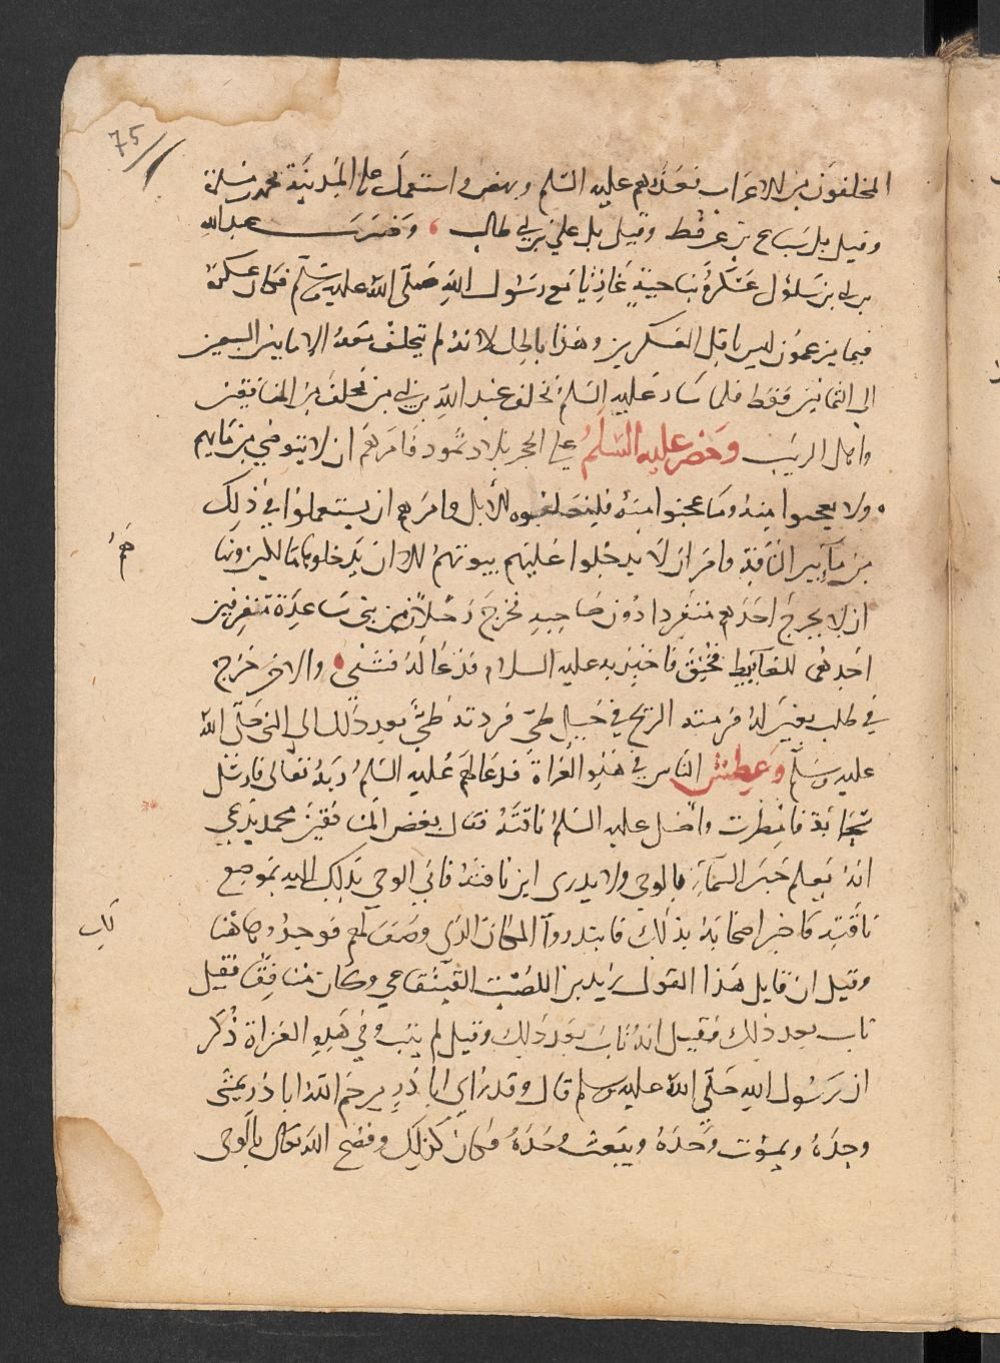 75
المخلفون من الاعراب فعذرهم عليه السلم ونهض واستعمل على المدينة محمد بن مسلمة
وقيل بل سباع بن عرفطة وقيل بل علي بن ابي طالب وضرب عبد الله
بن ابي بن سلول عسكره بناحيةٍ غازيا مع رسول الله صلى الله عليه وسلم فكان عسكره
فيما يزعمون ليس باقل العسكرين وهذا باطل لانه لم يتخلف معه الا ما بين السبعين
الى الثمانين فقط فلما سار عليه السلم تخلف عبد الله بن ابي فيمن تخلف من المنافقين
واهل الريب وخطر عليه السلم على الحجر بلاد ثمود فامرهم ان لا يتوضى من مايهم
ولا يعجنوا منه وما عجنوا منه فليعلفوه للابل وامرهم ان يستعملوا في ذلك
من مآء بير الناقة وامر ان لا يدخلوا عليهم بيوتهم الا ان يدخلوها باكين ونها
هم
ان لا يخرج احدهم منفردا دون صاحبه فخرج رجلان من بني ساعدة متفرقين
احدهما للغآئط فخنق فاخبر به عليه السلام فدعا له فشفي والاخر خرج
في طلب بعير له فرمته الريح في جبل طي فردته طي بعد ذلك الى النبي صلى الله
عليه وسلم وعطش الناس في هذه الغزاة فدعا لهم عليه السلم ربه تعالى فارسل
سحابة فامطرت واضل عليه السلم ناقته فقال بعض المنافقين محمد يدعي
انه يعلم خبر السمآء بالوحي ولا يدري اين ناقته فاتى الوحي بذلك اليه بموضع
ناقته فاخبر اصحابه بذلك فابتدروا المكان الذي وصف لهم فوجدوها هنا
لك
وقيل ان قايل هذا القول زيد بن اللصيت القينقاعي وكان منافقا فقيل
تاب بعد ذلك فقيل انه تاب بعد ذلك وقيل لم يتب وفي هذه الغزاة ذكر
ان رسول الله صلى الله عليه وسلم قال وقد راى ابا ذرٍ يرحم الله ابا ذر يمشي
وحده ويموت وحده ويبعث وحده فكان كذلك وفضح الله تعالى بالوحي